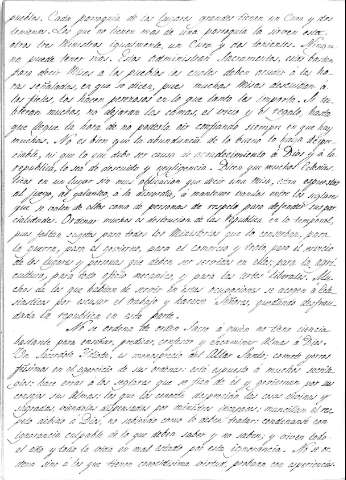 pueblos. Cada parroquia de los Lugares grandes tienen un Cura y dos
tenientes. Los que no tienen más de una parroquia la sirven estos
otros tres Ministros igualmente, un Cura y dos tenientes. Ninguno
no puede tener más. Estos administran Sacramentos, estos bastan
para decir Misas a los pueblos los cuales deben acudir a las ho
ras señaladas, en que se dicen, pues muchas Misas
los fieles los hacen perezosos en lo que tanto les importa. Si tu
bieran muchas, no dejaran las camas, el ocio y el regalo, hasta
que llegue la hora de no poderla oír confiando siempre en que hay
muchas. No es bien que la abundancia de lo bueno lo haga despre
ciable, ni que lo que debe ser causa de a Dios y a la
republica, lo sea de descuido y negligencia. Dicen que muchos Eclesias
ticos en un lugar sin más aplicacion que decir una Misa, son
al juego, al galanteo, a la discordia, a mantener entre los seglares
que se valen de ellos como de personas de respeto para defender sus par
cialidades. Ordenar muchos es destruccion de las Republicas en lo temporal,
pues faltan sugetos para todos los Ministerios que la conserban, para
la guerra, para el govierno, para el comercio y trato, para el
de los lugares y personas que deben ser servidos en ellos; para la agri
cultura, para todo oficio mecanico, y para las artes liberales. Mu
chos de los que habian de servir en estas ocupaciones se acogen a Ecle
siasticos por escusar el trabajo y hacerse Señores, quedando defrau
dada la republica en esta parte.
No se ordena de orden Sacro a quien no tiene ciencia
bastante para enseñar, predicar, confesar y encaminar Almas a Dios.
Un Sacerdote Ydiota, es menosprecio del Altar Santo; comete yerros
gravisimos en el egercicio de sus ordenes: está espuesto a muchos sacrile
gios: hace errar a los seglares que se fian de él y goviernan por sus
consejos sus Almas: los que las cosas divinas y
sagradas viendolas administradas por ministros incapaces: mancillan el res
peto debido a Dios, no sabiendo como le deben tratar: condenanse con
ignorancia culpable de lo que deben saber y no saben, y viven todo
el año y toda la vida en mal estado por esta ignorancia. No se or
dena sino a los que tienen conocidisima virtud, probada con esperiencias